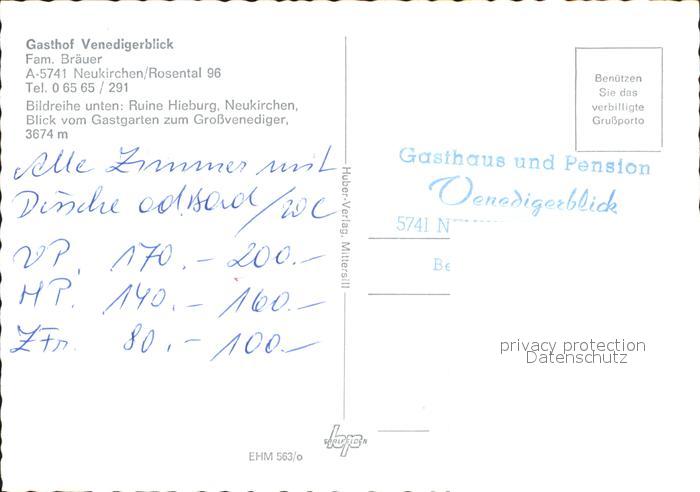 Gasthof Venedigerblick
Fam. Bräuer
A-5741 Neukirchen/Rosental 96
Tel. 0 65 65 / 291
Bildreihe unten: Ruine Hieburg, Neukirchen,
Blick vom Gastgarten zum Großvenediger,
3674 m
Alle Zimmer mit
Dusche od. Bad / WC
VP. 170.- 200.-
HP. 140.- 160.-
ZFr. 80.- 100.-
Huber-Verlag, Mittersill
EHM 563/o
Benützen
Sie das
verbilligte
Grußporto
Gasthaus und Pension
Venedigerblick
5741 N
Be
privacy protection
Datenschutz